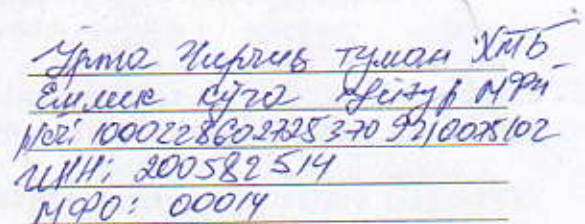 Ўрта Чирчиқ туман ХТБ
Ёшлик кўча МФЙ
100022860272537092100075102
ИНН: 200582514
МФО: 00014